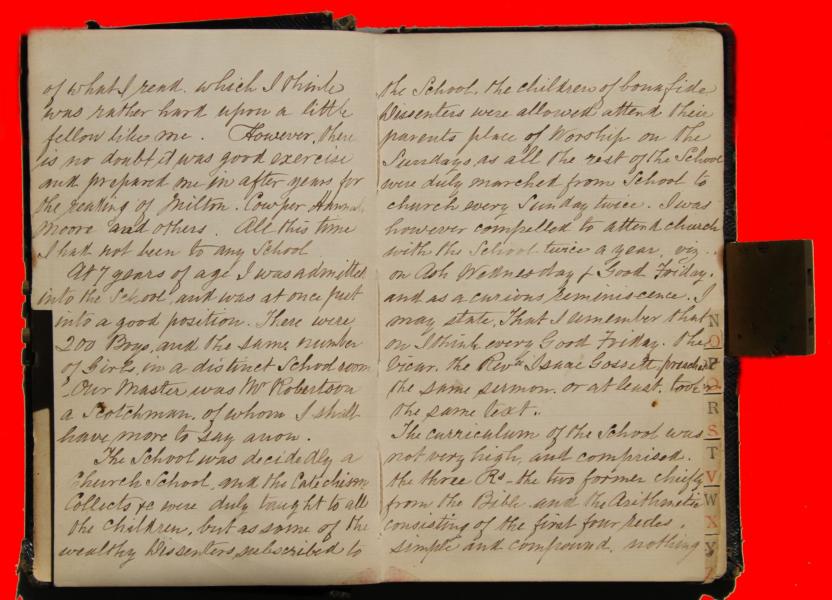 of what I read. which I think
was rather hard upon a little
fellow like me. However, there
is no doubt, it was good exercise
and prepared me in after years for
the reading of Milton. Cowper Hannah
Moore and others. All this time
I had not been to any School
At 7 years of age I was admitted
into the School, and was at once put
into a good position. There were
200 Boys, and the same number
of Girls, in a distinct School room
Our Master was Mr Robertson
a Scotchman. of whom I shall
have more to say anon.
The School was decidedly a
Church School, and the Catechism
Collects &c were duly taught to all
the children, but as some of the
wealthy Dissenters, subscribed to
the School. the children of bona fide
Dissenters were allowed attend their
parents place of Worship on the
Sundays, as all the rest of the School
were duly marched from School to
church every Sunday twice. I was
however compelled to attend church
with the School twice a year, viz.
on Ash Wednesday & Good Friday.
and as a curious reminiscence, I
may state, that I remember that
on I think every Good Friday. the
Vicar. the Revd. Isaac Gossett, preached
the same sermon. or at least. took
the same text.
The curriculum of the School was
not very high, and comprised.
the three Rs - the two former chiefly
from the Bible and the Arithmetic
consisting of the first four rules.
simple and compound. nothing
N
O
P
Q
R
S
T
V
W
X
Y
Z